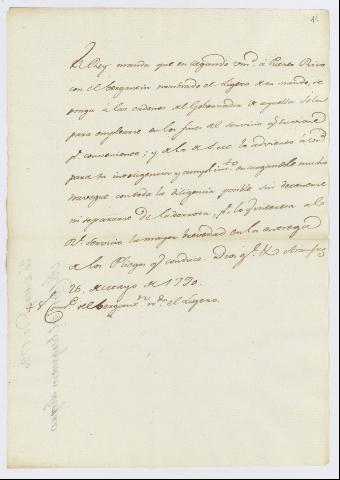 El Rey manda que en llegando Vmd. á Puerto Rico
con el bergantin nombrado el Ligero de su mando, se
ponga á las ordenes del Gobernador de aquella Isla
para emplearse en los fines del servicio qe. tuviere
pr. conveniente; y de la de S. M. lo advierto á Vmd.
para su inteligencia y cumplimto. encargandole mucho
navegue con toda la diligencia posible sin detenerse
ni separarse de la derrota, pr. lo que interesa á el
Rl. servicio la mayor brevedad en la entrega
de los Pliegos qe. conduce. Dios gue. &a. Aranjuez
26 de mayo de 1790.
Comte. del bergantn. ndo. el Ligero.